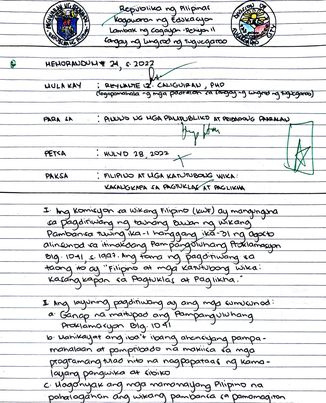 Republika ng Pilipinas
Kagawaran ng Edukasyon
Lambak ng Cagayan - Rehiyon II
Sangay ng Lungsod ng Tuguegarao
MEMORANDUM # 24, s. 2022
MULA KAY : REYNANTE Z. CALIGUIRAN, PhD
Tagapamahala ng mga paaralan ng Sangay ng Lungsod ng Tuguegarao
PARA SA : PUNONG MGA PAMPUBLIKO AT PRIBADONG PAARALAN
PETSA : HULYO 28, 2022
PAKSA : FILIPINO AT MGA KATUTUBONG WIKA:
KASANGKAPAN SA PAGTUKLAS AT PAGLIKHA
I. Ang Komisyon sa Wikang Filipino (KWF) ay
sa pagdiriwang ng taunang Buwan ng Wikang
Pambansa tuwing ika-1 hanggang ika-31 ng Agosto
alinsunod sa itinakdang Pampanguluhang Proklamasyon
Blg. 1041 s. 1997. Ang tema ng pagdiriwang sa
taong ito ay "Filipino at mga Katutubong Wika:
Kasangkapan sa Pagtuklas at Paglikha."
II. Ang layuning pagdiriwang ay ang mga sumusunod:
a. Ganap na matupad ang Pampanguluhang
Proklamasyon Blg. 1041
b. Mahikayat ang iba't ibang ahensyang pam-
mahalaan at pampribado na makiisa sa mga
programang
layang pangwika at sibiko
c. Maganyak ang mga mamamayang Pilipino na
pahalagahan ang wikang pambansa sa pamamagitan